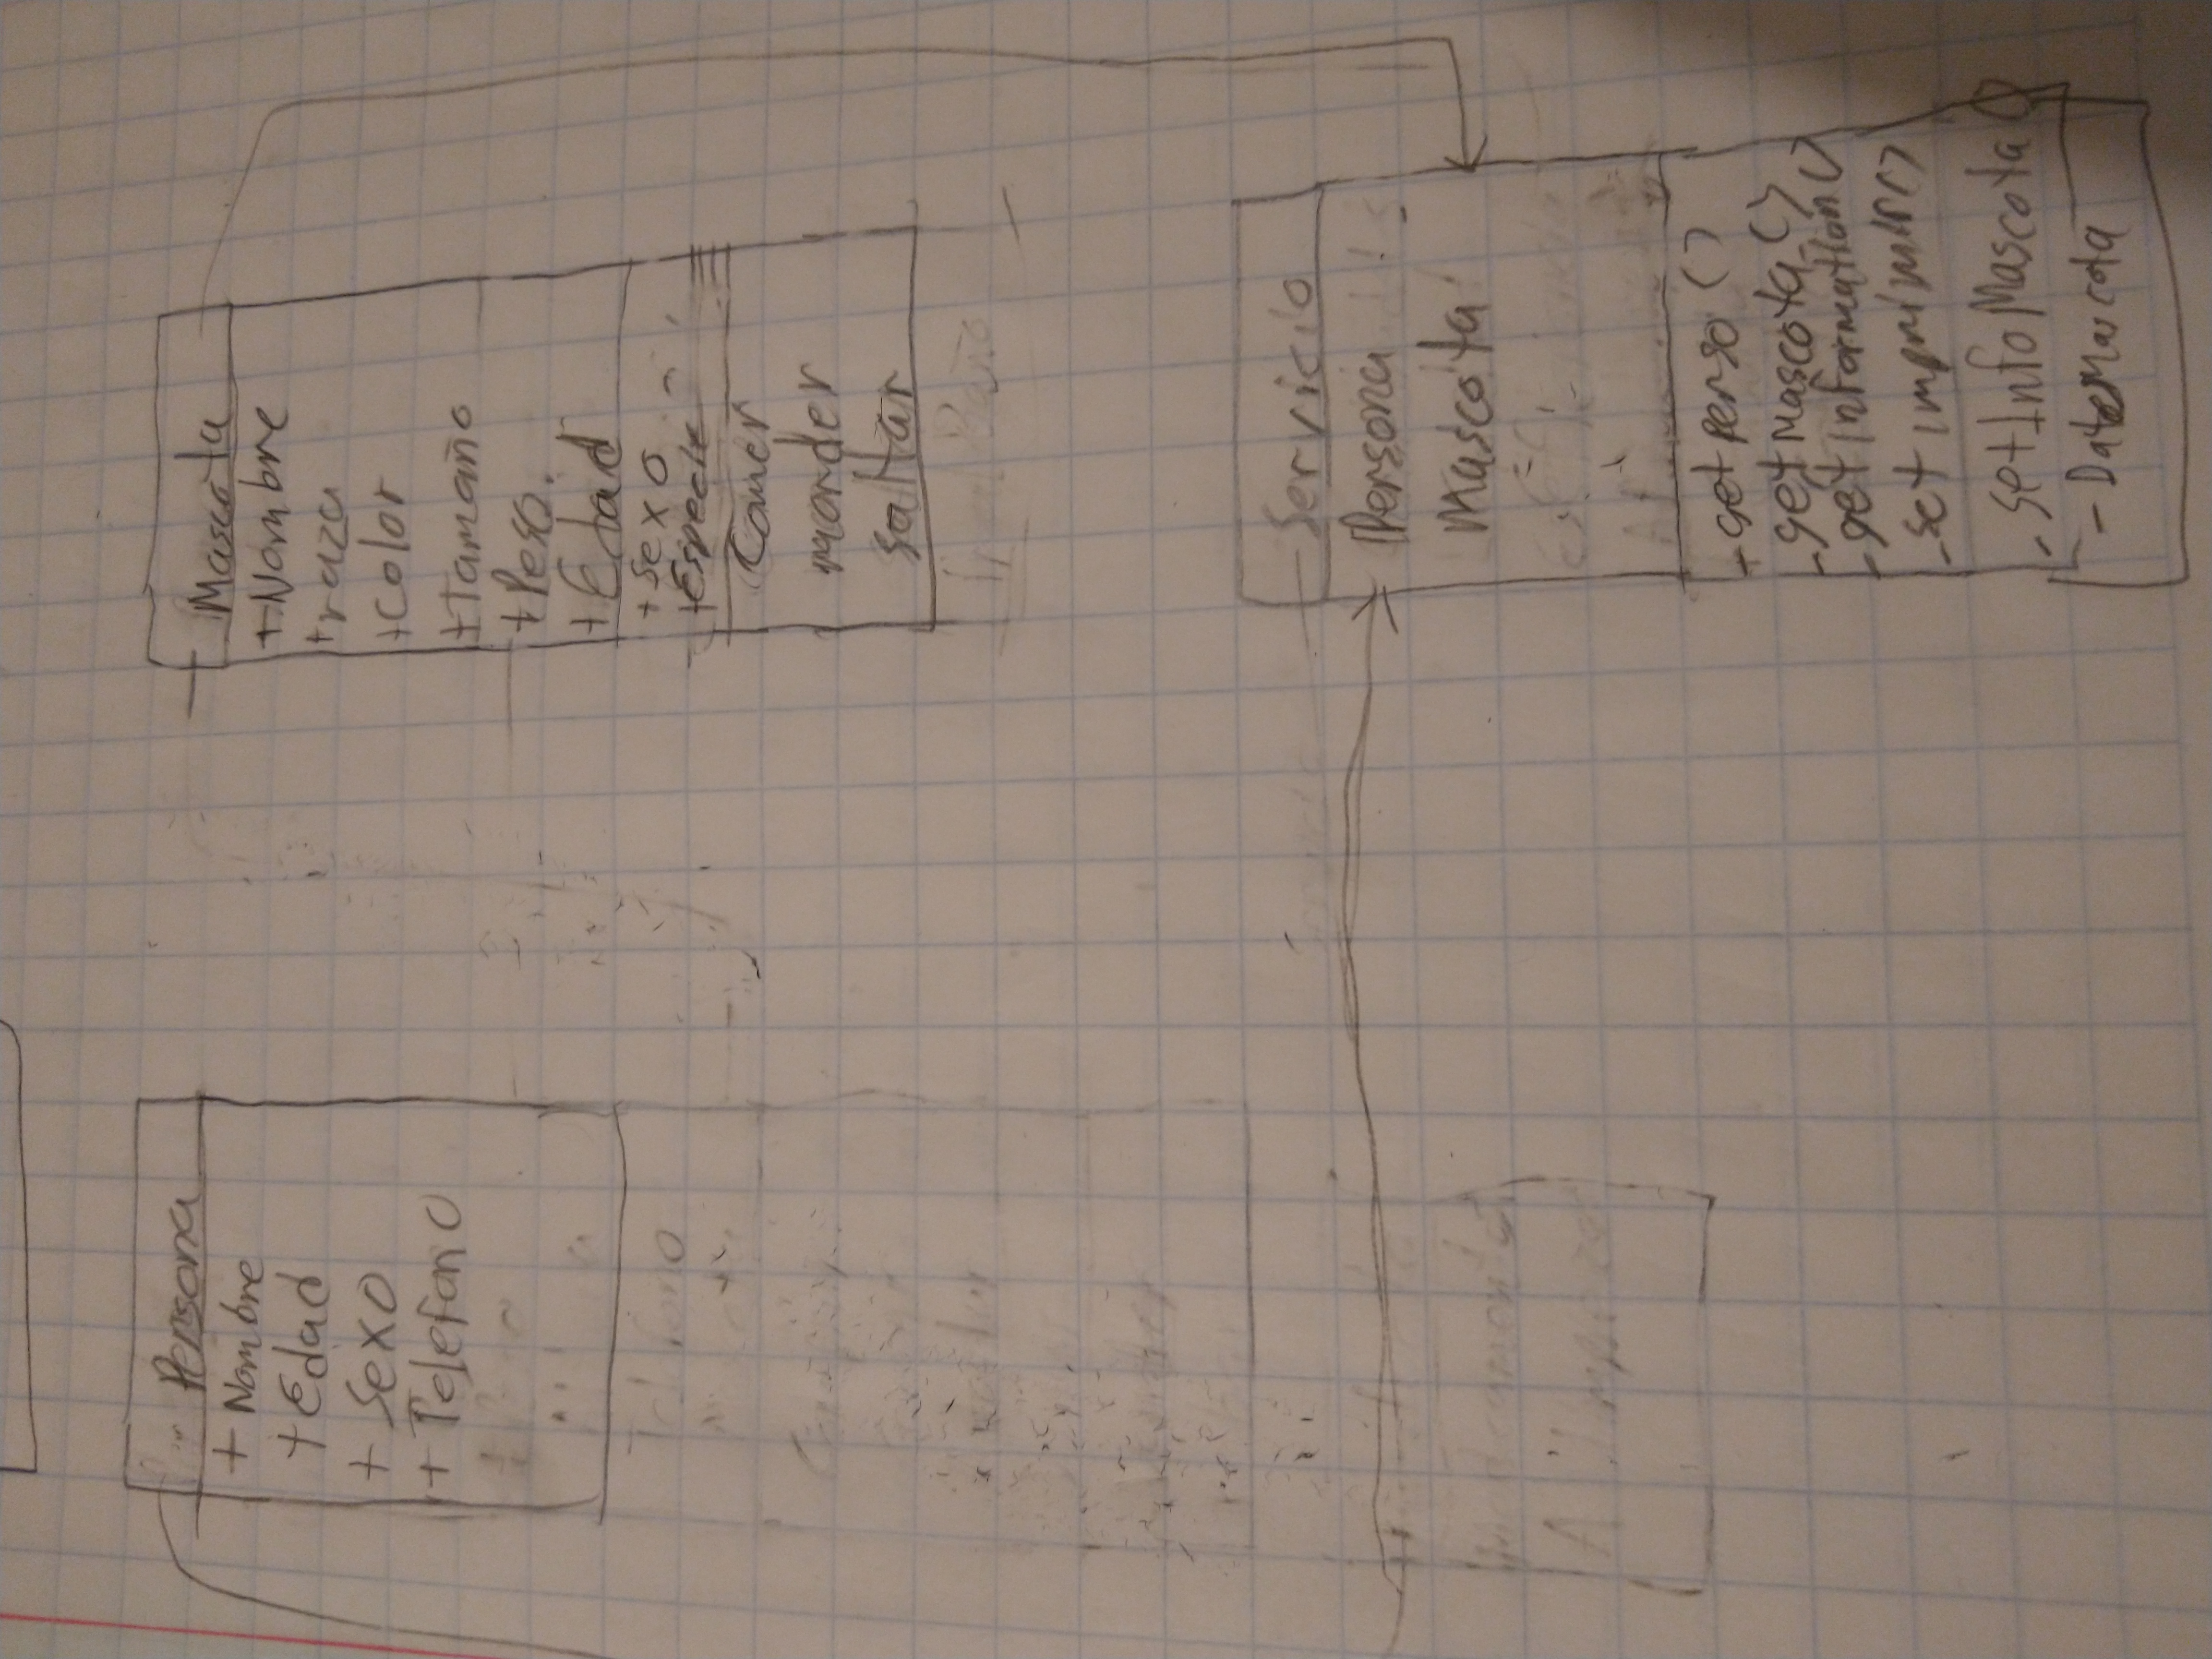 Persona
+ Nombre
+ Edad
+ Sexo
+ Telefono
Telefono
Mascota
+Nombre
+raza
+Color
+Tamaño
+Peso.
+Edad
+Sexo
+Especie
Comer
morder
saltar
ir al Baño
Servicio
Persona
Mascota
- get perso ()
- get Mascota ()
- get information ()
- set imprimir ()
- set Info Mascota ()
- Date Mascota